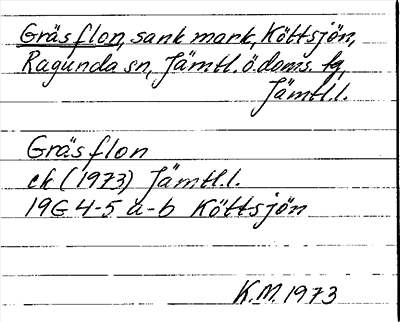 Gräsflon, sank mark, Köttsjön,
Ragunda sn, Jämtl. ö. doms. tg,
Jämtl. l.
Gräsflon
ek (1973) Jämtl. l.
19G 4-5 a-b Köttsjön
K.M. 1973